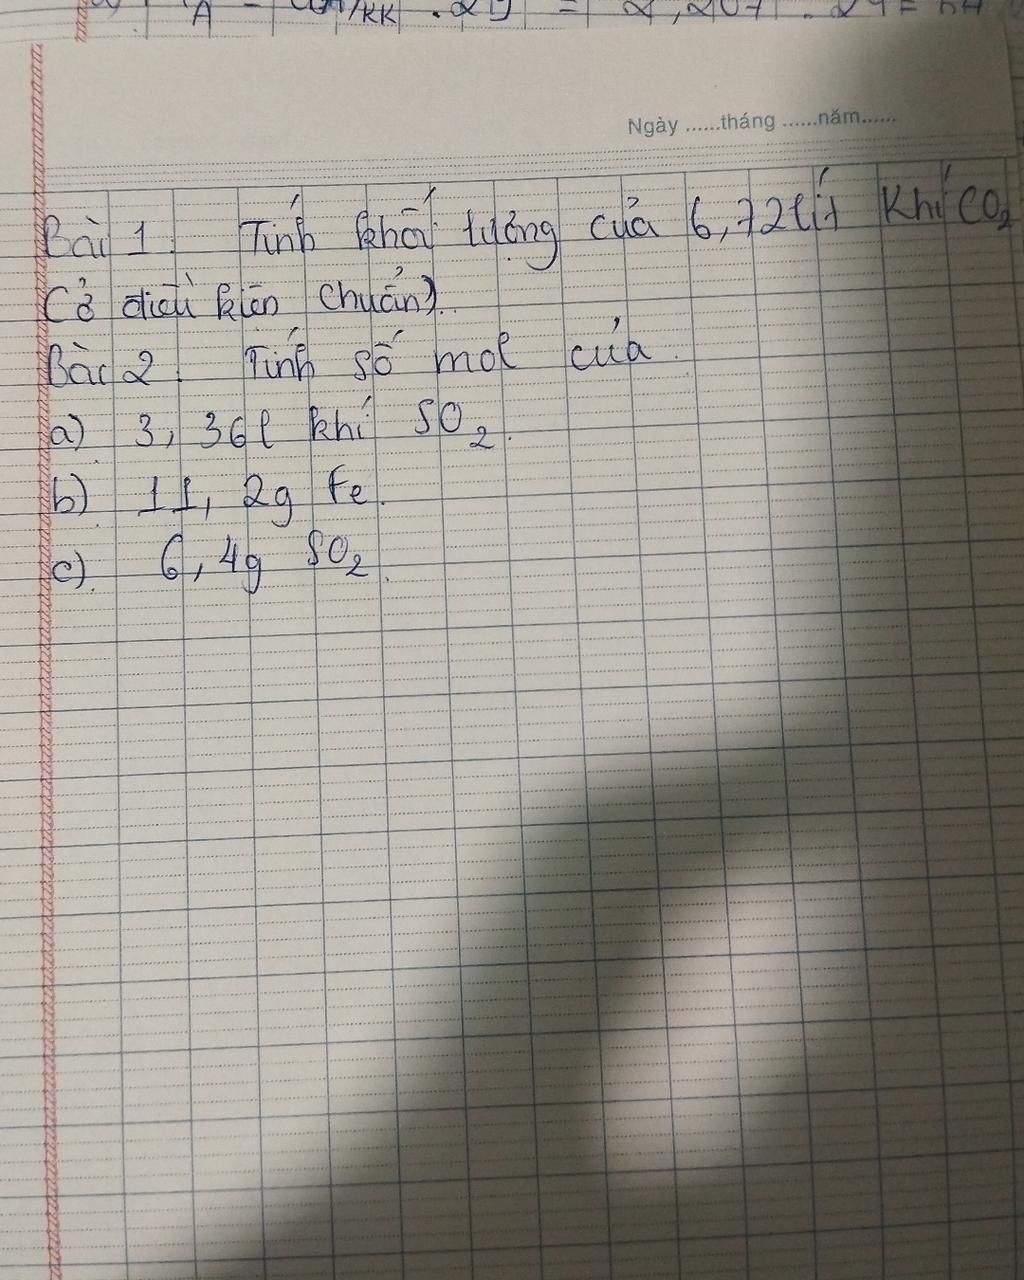 A
/KK . 29 =
Ngày ......tháng ......năm......
Bài 1. Tính khối lượng của 6,72 lít khí CO2
(ở điều kiện chuẩn).
Bài 2. Tính số mol của.
a) 3,36l khí SO2.
b) 11,2g Fe.
c). 6,4g SO2.